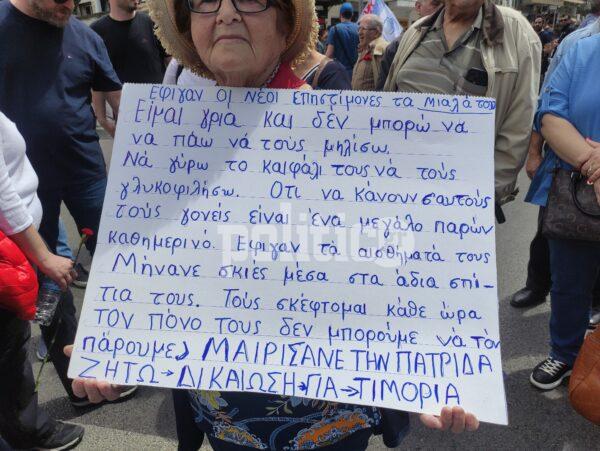 ΕΦΙΓΑΝ ΟΙ ΝΕΟΙ ΕΠΗΣΤΙΜΟΝΕΣ ΤΑ ΜΙΑΛΑ ΤΟΥ
ΕΙΜΑΙ ΓΡΙΑ ΚΑΙ ΔΕΝ ΜΠΟΡΩ ΝΑ
ΝΑ ΠΑΩ ΝΑ ΤΟΥΣ ΜΗΛΙΣΩ.
ΝΑ ΓΥΡΩ ΤΟ ΚΑΙΦΑΛΙ ΤΟΥΣ ΝΑ ΤΟΥΣ
ΓΛΥΚΟΦΙΛΗΣΩ. ΟΤΙ ΝΑ ΚΑΝΟΥΝ Σ'ΑΥΤΟΥΣ
ΤΟΥΣ ΓΟΝΕΙΣ ΕΙΝΑΙ ΕΝΑ ΜΕΓΑΛΟ ΠΑΡΩΝ
ΚΑΘΗΜΕΡΙΝΟ. ΕΦΙΓΑΝ ΤΑ ΑΙΣΘΗΜΑΤΑ ΤΟΥΣ
politic
ΜΗΝΑΝΕ ΣΚΙΕΣ ΜΕΣΑ ΣΤΑ ΑΔΙΑ ΣΠΙ-
ΤΙΑ ΤΟΥΣ. ΤΟΥΣ ΣΚΕΦΤΟΜΑΙ ΚΑΘΕ ΩΡΑ
ΤΟΝ ΠΟΝΟ ΤΟΥΣ ΔΕΝ ΜΠΟΡΟΥΜΕ ΝΑ ΤΟΝ
ΠΑΡΟΥΜΕ) ΜΑΙΡΙΣΑΝΕ ΤΗΝ ΠΑΤΡΙΔΑ
ΖΗΤΩ → ΔΙΚΑΙΩΣΗ → ΓΙΑ → ΤΙΜΟΡΙΑ
politic